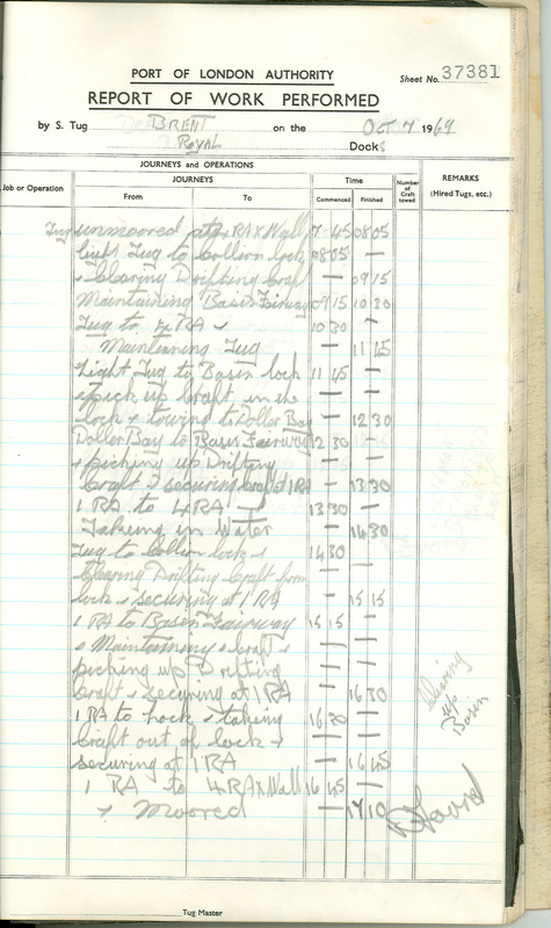 PORT OF LONDON AUTHORITY
Sheet No. 37381
REPORT OF WORK PERFORMED
by S. Tug BRENT on the OCT 7 1969
Royal Docks
JOURNEYS and OPERATIONS
Job or Operation JOURNEYS Time Number of Craft towed REMARKS (Hired Tugs, etc.)
From To Commenced Finished
Tug unmoored at 4 RA x Wall 7 45 08 05
light Tug to Collion lock 08 05 —
+ Clearing Drifting Craft — 09 15
Maintaining Basin Fairway 09 15 10 30
Tug to 4 RA + 10 30 —
Maintaining Tug — 11 45
Light Tug to Basin lock 11 45 —
+ pick up Craft in the — —
lock + towing to Doller Bay — 12 30
Doller Bay to Basin Fairway 12 30 —
+ picking up Drifting — —
Craft + securing Craft at 1 RA — 13 30
1 RA to 4 RA + 13 30 —
Takeing in Water — 14 30
Tug to Collion lock + 14 30 —
Clearing Drifting Craft from — —
lock + securing at 1 RA — 15 15
1 RA to Basin Fairway 15 15 —
+ Maintaining + Craft + — —
picking up Drifting — —
Craft + securing at 1 RA — 16 30
1 RA to hock + taking 16 30 —
Craft out of lock + — —
securing at 1 RA — 16 45
1 RA to 4 RA x Wall 16 45 —
+ Moored — 17 10
Clearing
up
Basin
Tug Master